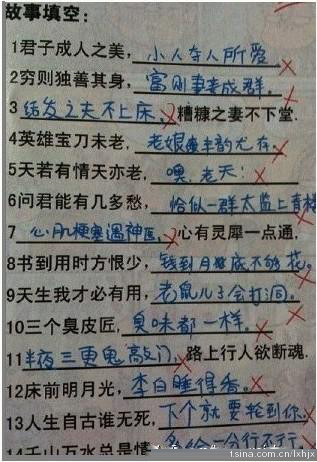 故事填空：
1君子成人之美，小人夺人所爱
2穷则独善其身，富则妻妾成群。
3结发之夫不上床，糟糠之妻不下堂.
4英雄宝刀未老，老娘丰韵尤存。
5天若有情天亦老，噢,老天!
6问君能有几多愁，恰似一群太监上青楼
7心肌梗塞遇神医，心有灵犀一点通，
8书到用时方恨少，钱到月底不够花。
9天生我才必有用，老鼠儿子会打洞。
10三个臭皮匠，臭味都一样。
11半夜三更鬼敲门，路上行人欲断魂.
12床前明月光，李白睡得香。
13人生自古谁无死，下个就要轮到你.
14千山万水总是情，多给一分行不行.
tsina.com.cn/lxhjx